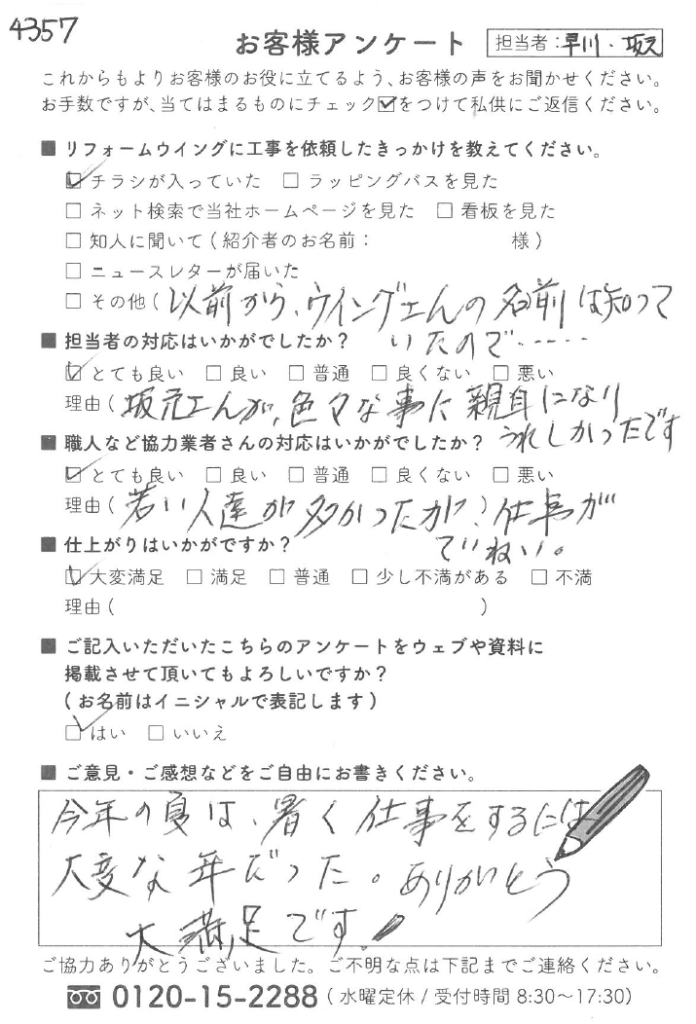 4357
お客様アンケート 担当者：早川・坂元
これからもよりお客様のお役に立てるよう、お客様の声をお聞かせください。
お手数ですが、当てはまるものにチェック☑をつけて私供にご返信ください。
■ リフォームウイングに工事を依頼したきっかけを教えてください。
☑ チラシが入っていた □ ラッピングバスを見た
□ ネット検索で当社ホームページを見た □ 看板を見た
□ 知人に聞いて（紹介者のお名前： 様）
□ ニュースレターが届いた
□ その他（以前から、ウイングさんの名前は知って
いたので‥‥‥
■ 担当者の対応はいかがでしたか？
☑ とても良い □ 良い □ 普通 □ 良くない □ 悪い
理由（坂元さんが、色々な事に親身になり
うれしかったです
■ 職人など協力業者さんの対応はいかがでしたか？
☑ とても良い □ 良い □ 普通 □ 良くない □ 悪い
理由（若い人達が多かったが、）仕事が
ていねい。
■ 仕上がりはいかがですか？
☑ 大変満足 □ 満足 □ 普通 □ 少し不満がある □ 不満
理由（ ）
■ ご記入いただいたこちらのアンケートをウェブや資料に
掲載させて頂いてもよろしいですか？
（お名前はイニシャルで表記します）
☑ はい □ いいえ
■ ご意見・ご感想などをご自由にお書きください。
今年の夏は、暑く仕事をするには
大変な年だった。ありがとう
大満足です！
ご協力ありがとうございました。ご不明な点は下記までご連絡ください。
0120-15-2288（水曜定休/受付時間 8:30～17:30）